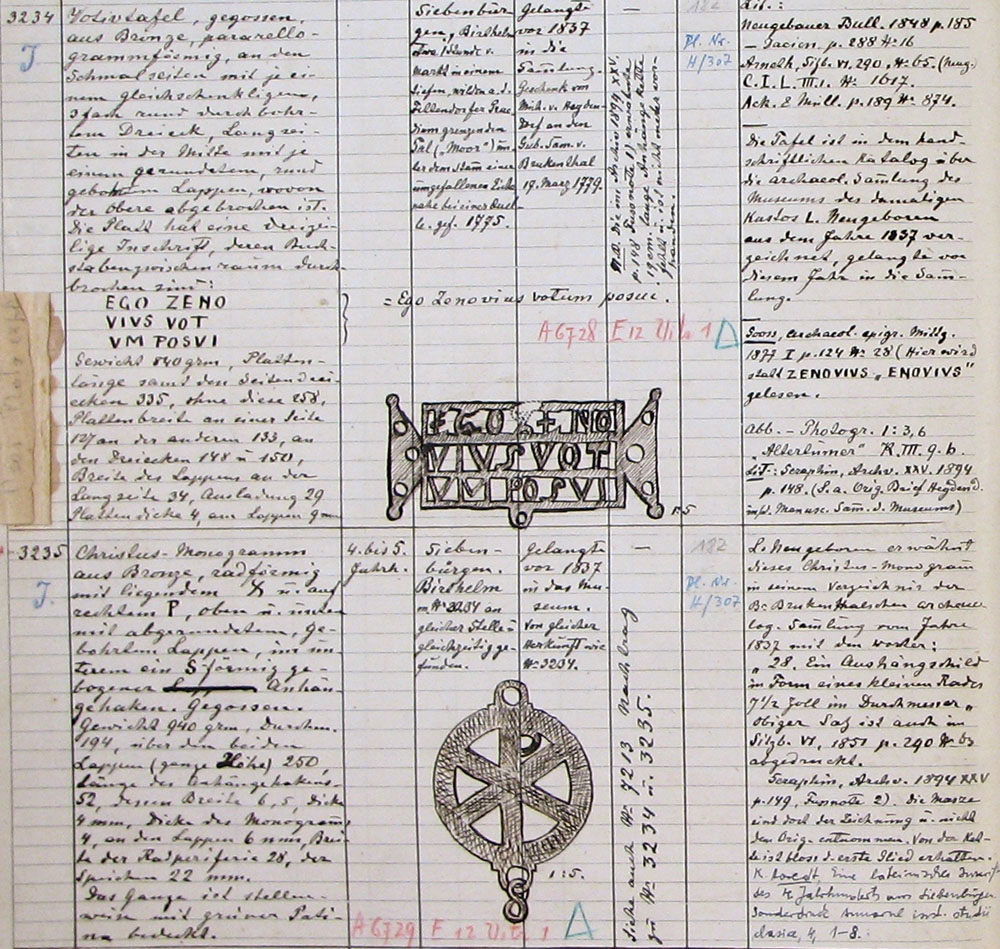 3234
J
Votivtafel, gegossen.
aus Bronze, pararello-
grammförmig, an den
Schmalseiten mit je ei-
nem gleichschenkligen,
3fach rund durchbohr-
tem Dreieck, Langsei-
ten in der Mitte mit je
einem gerundetem, rund
gebohrtem Lappen, wovon
der obere abgebrochen ist.
Die Platt hat eine dreizei-
lige Inschrift, deren Buch-
stabenzwischenraum durch-
brochen sind:
EGO ZENO
VIVS VOT
VM POSVI
= Ego Zenovius votum posui.
Gewicht 840 grm, Platten-
länge samt den Seitendrei-
ecken 335, ohne diese 258,
Plattenbreite an einer Seite
127 an der anderen 133, an
den Dreiecken 148 u 150,
Breite des Lappens an der
Langseite 34, Ausladung 29
Plattendicke 4, am Lappen 9 mm
Siebenbür-
gen, Birthelm
Markt in einem
Tal („Moor") un-
ter dem Stam einer
umgefallenen Eiche
nahe bei einer Quel-
le. gef. 1775.
Gelangte
vor 1837
in die
Sammlung.
Geschenk von
Mich. v. Heyden-
dorf an den
Gub. Sam. v.
Brukenthal
19. März 1779.
—
N.B. Die im Archiv 1894 XXV,
p. 148 Fussnote 1) erwähnte
19 cm. lange Anhängekette
fehlt u. ist nicht mehr vor-
handen.
182
Pl. Nr.
H/307
A 6728 E 12 Vitr. 1 Δ
EGO ZENO
VIVS VOT
VM POSVI
1:5
Lit.:
Neugebauer Bull. 1848 p. 185
— Dacien. p. 288 № 16
Arneth, Sitzb. VI. 290, № 65. (Neug.)
C. I. L. III. 1. № 1617.
Ack. & Müll. p. 189 № 874.
Die Tafel ist in dem hand-
schriftlichen Katalog über
die archaeol. Samlung des
Museums des damaligen
Kustos L. Neugeboren
aus dem Jahre 1837 ver-
zeichnet, gelangte vor
diesem Jahr in die Sam-
lung.
Gooss, Archaeol. epigr. Mittg.
1877 I p. 124 № 28 (Hier wird
statt ZENOVIUS „ENOVIUS"
gelesen.
Abb. – Photogr. 1:3,6
„Altertümer" R. III. 9. b.
Lit: Seraphin, Archv. XXV. 1894
p. 148. (S. a. Orig. Brief Heydend.
im d. Manusc. Sam. d. Museums)
3235
J.
Christus-Monogramm
aus Bronze, radförmig
mit liegendem X u. auf
rechtem P, oben u. unten
mit abgerundetem, ge-
bohrtem Lappen, im un-
terem ein S förmig ge-
bogener Anhän-
gehaken. Gegossen.
Gewicht 940 grm, Durchm.
194, über den beiden
Lappen (ganze Höhe) 250,
Länge des Anhängehakens
52, dessen Breite 6,5, Dicke
4 mm, Dicke des Monograms
4, an den Lappen 6 mm, Brei-
te der Radperiferie 28, der
Speichen 22 mm.
Das Ganze ist stellen-
weise mit grüner Pati-
na bedeckt.
4. bis 5.
Jahrh.
Sieben-
bürgen.
Birthelm
m. № 3234 an
gleicher Stelle u
gleichzeitig ge-
funden.
Gelangte
vor 1837
in das Mu-
seum.
Von gleicher
Herkunft wie
№ 3234.
—
Siehe auch № 7213 Nachtrag
zu № 3234 u. 3235.
182
Pl. Nr.
H/307
1:5.
A 6729 E 12 Vitr. 1 Δ
L. Neugeboren erwähnt
dieses Christus-Monogram
in seinem Verzeichnis der
B. Brukenthalschen archaeo-
log. Samlung vom Jahre
1837 mit den worten:
„28. Ein Aushängschild
in Form eines kleinen Rades
7 1/2 Zoll im Durchmesser"
obiger Satz ist auch im
Sitzb. VI, 1851 p. 290 № 65
abgedruckt.
Seraphin, Archv. 1894 XXV
p. 149, Fussnote 2). Die Masze
sind dort der Zeichnung u. nicht
dem Orig. entnommen. Von der Ket-
te ist bloss d. erste Glied erhalten.
K. Horedt Eine lateinische Inschrift
des 4. Jahrhunderts aus Siebenbürgen
Sonderdruck Anuarul inst. studii
clasice, 4, 1-8.